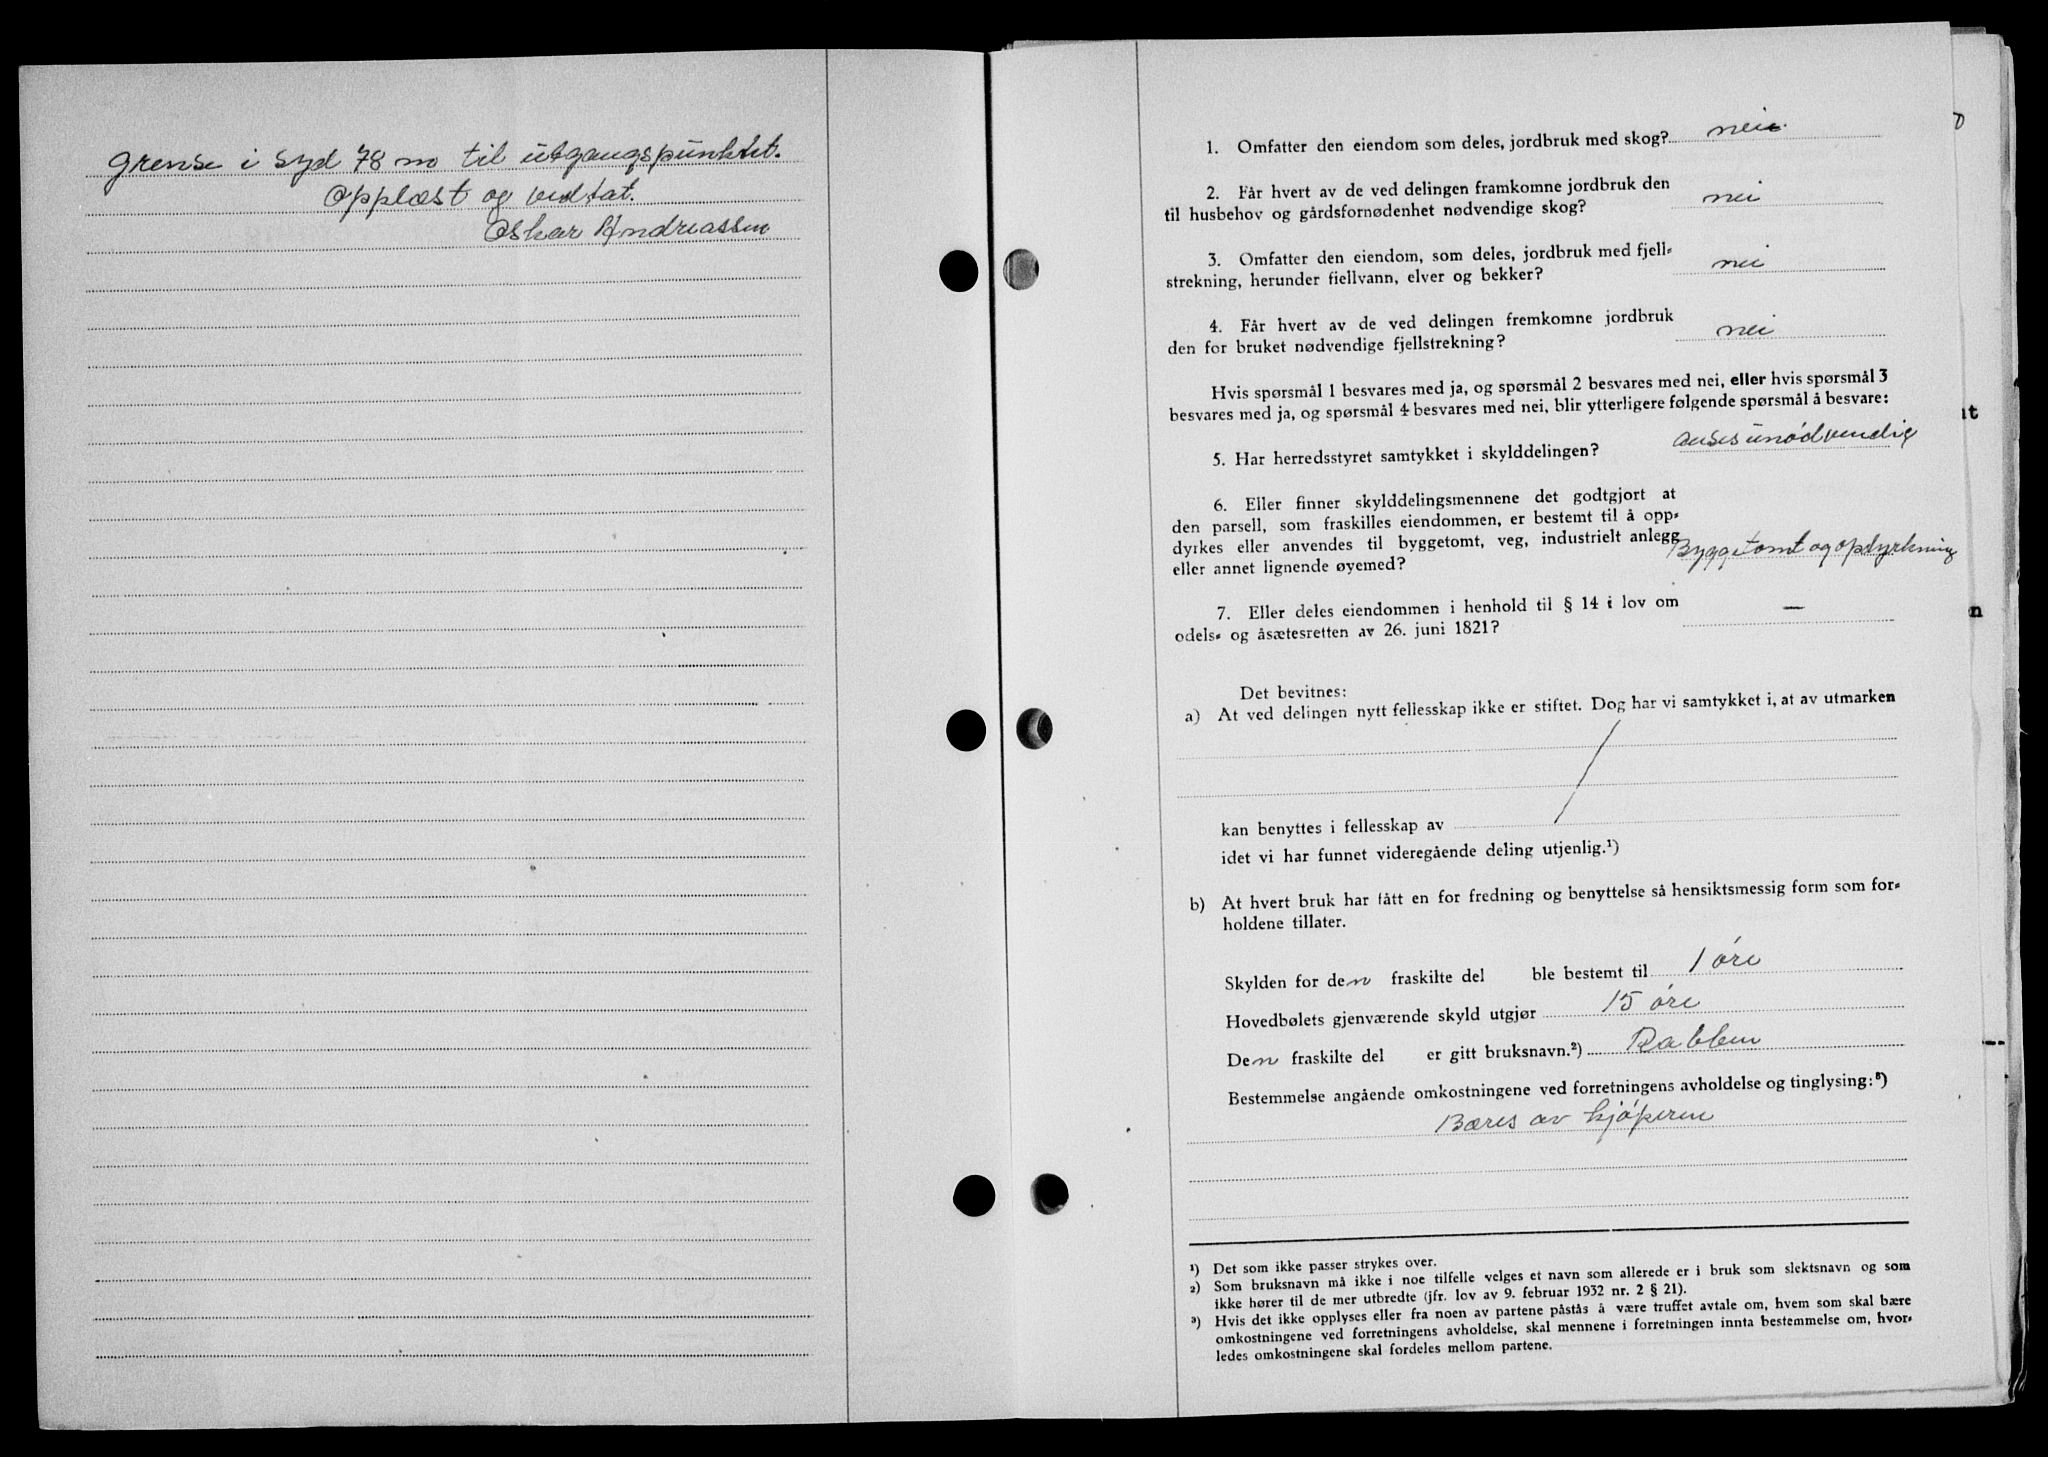 grense i syd 78 m til utgangspunktet.
Opplæst og vedtat.
Oskar Andreassen
1. Omfatter den eiendom som deles, jordbruk med skog? nei
2. Får hvert av de ved delingen framkomne jordbruk den
til husbehov og gårdsfornødenhet nødvendige skog? nei
3. Omfatter den eiendom, som deles, jordbruk med fjell-
strekning, herunder fjellvann, elver og bekker? nei
4. Får hvert av de ved delingen fremkomne jordbruk
den for bruket nødvendige fjellstrekning? nei
Hvis spørsmål 1 besvares med ja, og spørsmål 2 besvares med nei, eller hvis spørsmål 3
besvares med ja, og spørsmål 4 besvares med nei, blir ytterligere følgende spørsmål å besvare:
5. Har herredsstyret samtykket i skylddelingen? anses unødvendig
6. Eller finner skylddelingsmennene det godtgjort at
den parsell, som fraskilles eiendommen, er bestemt til å opp-
dyrkes eller anvendes til byggetomt, veg, industrielt anlegg
eller annet lignende øyemed? Byggetomt og opdyrkning
7. Eller deles eiendommen i henhold til § 14 i lov om
odels- og åsætesretten av 26. juni 1821? —
Det bevitnes:
a) At ved delingen nytt fellesskap ikke er stiftet. Dog har vi samtykket i, at av utmarken
kan benyttes i fellesskap av
idet vi har funnet videregående deling utjenlig.¹)
b) At hvert bruk har fått en for fredning og benyttelse så hensiktsmessig form som for-
holdene tillater.
Skylden for den fraskilte del ble bestemt til 1 øre
Hovedbølets gjenværende skyld utgjør 15 øre
Den fraskilte del er gitt bruksnavn.²) Rabben
Bestemmelse angående omkostningene ved forretningens avholdelse og tinglysing:³)
Bæres av kjøperen
¹) Det som ikke passer strykes over.
²) Som bruksnavn må ikke i noe tilfelle velges et navn som allerede er i bruk som slektsnavn og som
ikke hører til de mer utbredte (jfr. lov av 9. februar 1932 nr. 2 § 21).
³) Hvis det ikke opplyses eller fra noen av partene påstås å være truffet avtale om, hvem som skal bære
omkostningene ved forretningens avholdelse, skal mennene i forretningen innta bestemmelse om, hvor-
ledes omkostningene skal fordeles mellom partene.